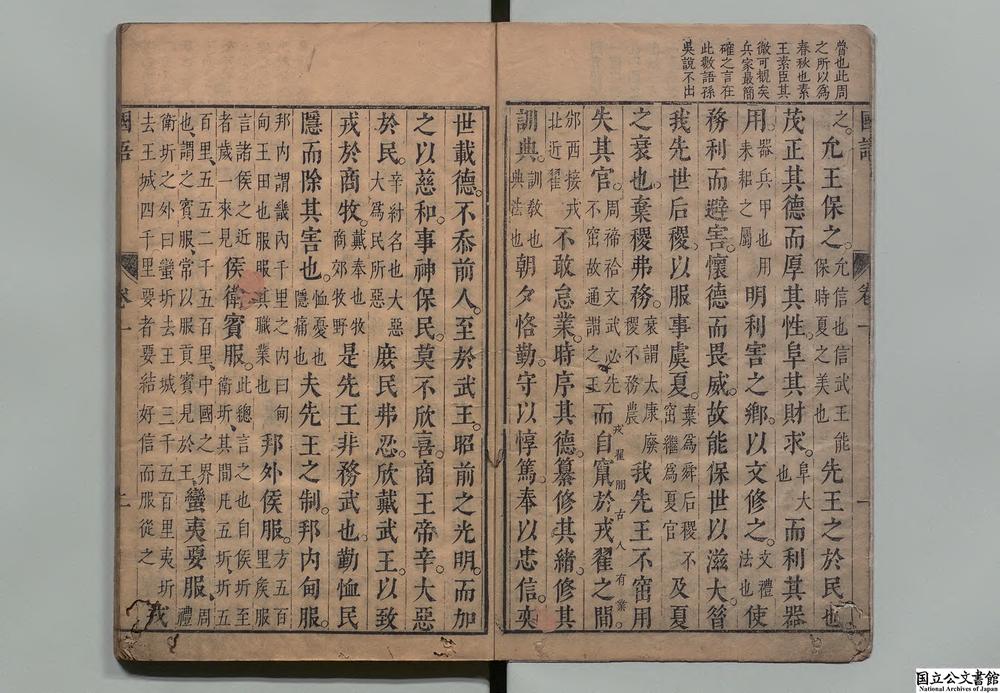 曾也此周
之所以為
春秋也素
王素臣其
微可概矣
兵家最簡
確之言在
此數語孫
吳說不出
國語 卷一 一
之。允王保之。允信也信武王能保時夏之美也先王之於民也
茂正其德而厚其性。阜其財求。阜大也而利其器
用。器兵甲也用耒耜之屬明利害之鄉。以文修之。文禮法也使
務利而避害。懷德而畏威。故能保世以滋大。昔
我先世后稷。以服事虞夏。棄爲舜后稷不窋繼爲夏官及夏
之衰也。棄稷弗務。衰謂太康廢稷不務農我先王不窋用
失其官。周禘祫文武必先不窋故通謂之王而自竄於戎翟之間。
戎翟間古人有業
邠西接戎北近翟不敢怠業。時序其德。纂修其緒。修其
訓典。訓教也典法也朝夕恪勤。守以惇篤。奉以忠信。奕
世載德。不忝前人。至於武王。昭前之光明。而加
之以慈和。事神保民。莫不欣喜。商王帝辛。大惡
於民。辛紂名也大惡大爲民所惡庶民弗忍。欣戴武王。以致
戎於商牧。戴奉也牧商郊牧野是先王非務武也。勤恤民
隱而除其害也。恤憂也隱痛也夫先王之制。邦內甸服。
邦內謂畿內千里之內曰甸王田也服服其職業也邦外侯服。方五百里矦服
言諸侯之近者歲一來見侯衛賓服。此總言之也自侯圻至衛圻、其間凡五圻、圻五
百里、五五二千五百里、中國之界也、謂之賓服、常以服貢賓見於王、蠻夷要服。周禮
衛圻之外曰蠻圻去王城三千五百里夷圻去王城四千里要者要結好信而服從之戎
國語 卷一 二
国立公文書館
National Archives of Japan